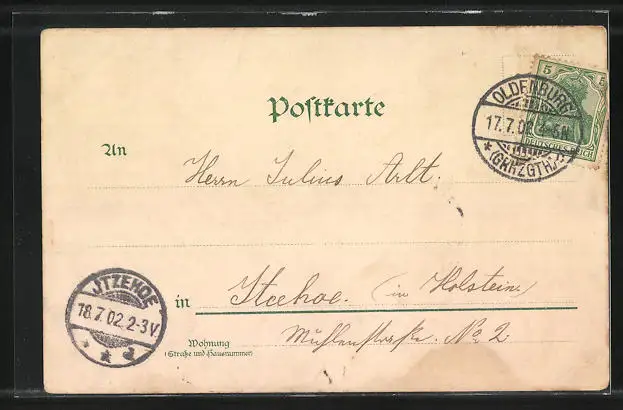 5 5
DEUTSCHES REICH
OLDENBURG
17.7.02
(GRHZGTH.)
Postkarte
An
Herrn Julius Arlt.
JTZEHOE
18.7.02.2-3V
in Itzehoe. (in Holstein)
Mühlenstraße. No 2
Wohnung
(Straße und Hausnummer)